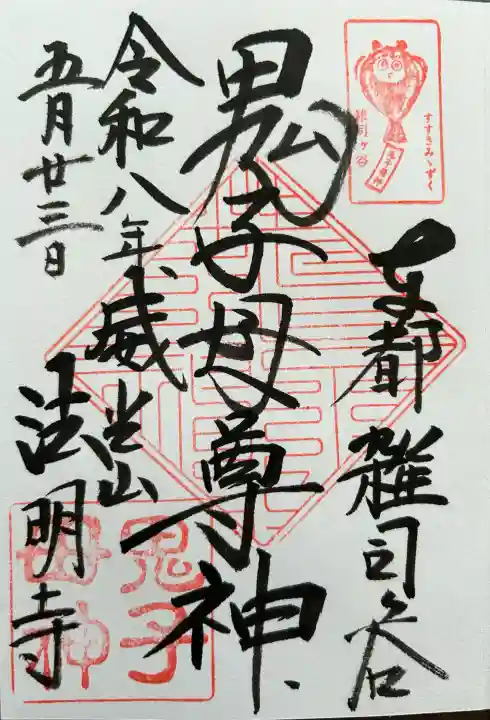 すすきみゝずく
雑司ヶ谷
東都 雑司ヶ谷
鬼子母尊神
威光山
法明寺
令和八年
五月廿三日
鬼子
母神